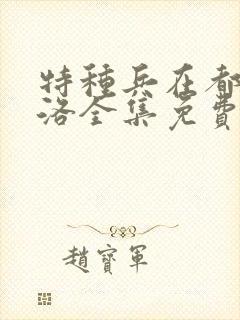 特種兵在都
洛全集免費
趙寶軍